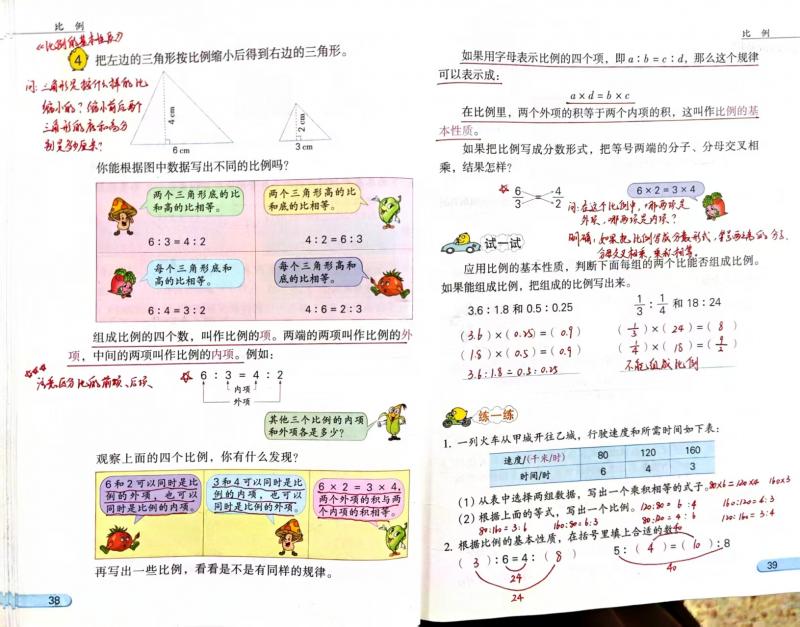 比 例
《比例的基本性质》
4 把左边的三角形按比例缩小后得到右边的三角形。
问:三角形是按什么样的比
缩小的?缩小前后两个
三角形的底和高分
别是多少厘米?
4 cm
6 cm
2 cm
3 cm
你能根据图中数据写出不同的比例吗?
两个三角形底的比
和高的比相等。
6 : 3 = 4 : 2
两个三角形高的比
和底的比相等。
4 : 2 = 6 : 3
每个三角形底和
高的比相等。
6 : 4 = 3 : 2
每个三角形高和
底的比相等。
4 : 6 = 2 : 3
组成比例的四个数,叫作比例的项。两端的两项叫作比例的外
项,中间的两项叫作比例的内项。例如:
注意区分比的前项、后项
6 : 3 = 4 : 2
内项
外项
其他三个比例的内项
和外项各是多少?
观察上面的四个比例,你有什么发现?
6 和 2 可以同时是比
例的外项,也可以
同时是比例的内项。
3 和 4 可以同时是比
例的内项,也可以
同时是比例的外项。
6 × 2 = 3 × 4,
两个外项的积与两
个内项的积相等。
再写出一些比例,看看是不是有同样的规律。
38
比 例
如果用字母表示比例的四个项,即 a : b = c : d,那么这个规律
可以表示成:
a × d = b × c
在比例里,两个外项的积等于两个内项的积,这叫作比例的基
本性质。
如果把比例写成分数形式,把等号两端的分子、分母交叉相
乘,结果怎样?
6/3 4/2
6 × 2 = 3 × 4
问:在这个比例中,哪两项是
外项,哪两项是内项?
明确:如果把比例写成分数形式,等号两端的分子、
分母交叉相乘,乘积相等。
试一试
应用比例的基本性质,判断下面每组的两个比能否组成比例。
如果能组成比例,把组成的比例写出来。
3.6 : 1.8 和 0.5 : 0.25
1/3 : 1/4 和 18 : 24
( 3.6 ) × ( 0.25 ) = ( 0.9 )
( 1/3 ) × ( 24 ) = ( 8 )
( 1.8 ) × ( 0.5 ) = ( 0.9 )
( 1/4 ) × ( 18 ) = ( 9/2 )
3.6 : 1.8 = 0.5 : 0.25
不能组成比例
练一练
1. 一列火车从甲城开往乙城,行驶速度和所需时间如下表:
速度/(千米/时) 80 120 160
时间/时 6 4 3
(1) 从表中选择两组数据,写出一个乘积相等的式子。80×6=120×4 160×3
(2) 根据上面的等式,写出一个比例。120:80 = 6:4 160:120=4:3
80:160=3:6 160:80=6:3 80:120=4:6 120:160=3:4
2. 根据比例的基本性质,在括号里填上合适的数。
( 3 ) : 6 = 4 : ( 8 )
5 : ( 4 ) = ( 10 ) : 8
24
24
40
40
39